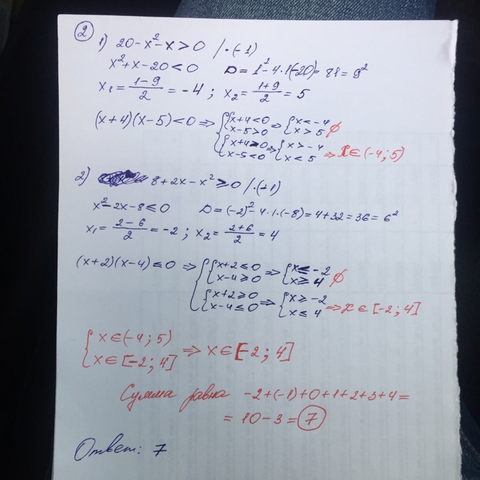 ② 1) 20-x²-x>0 /·(-1)
x²+x-20<0 D=1²-4·1·(-20)=81=9²
x₁=(1-9)/2=-4; x₂=(1+9)/2=5
(x+4)(x-5)<0 ⇒ { { x+4<0 ⇒ { x<-4
x-5>0 x>5 ∅
{ x+4>0 ⇒ { x>-4
x-5<0 x<5 ⇒ x∈(-4;5)
2) 8+2x-x²≥0 /·(-1)
x²-2x-8≤0 D=(-2)²-4·1·(-8)=4+32=36=6²
x₁=(2-6)/2=-2; x₂=(2+6)/2=4
(x+2)(x-4)≤0 ⇒ { { x+2≤0 ⇒ { x≤-2
x-4≥0 x≥4 ∅
{ x+2≥0 ⇒ { x≥-2
x-4≤0 x≤4 ⇒ x∈[-2;4]
{ x∈(-4;5)
x∈[-2;4] ⇒ x∈[-2;4]
Сумма равна -2+(-1)+0+1+2+3+4=
=10-3=7
Ответ: 7